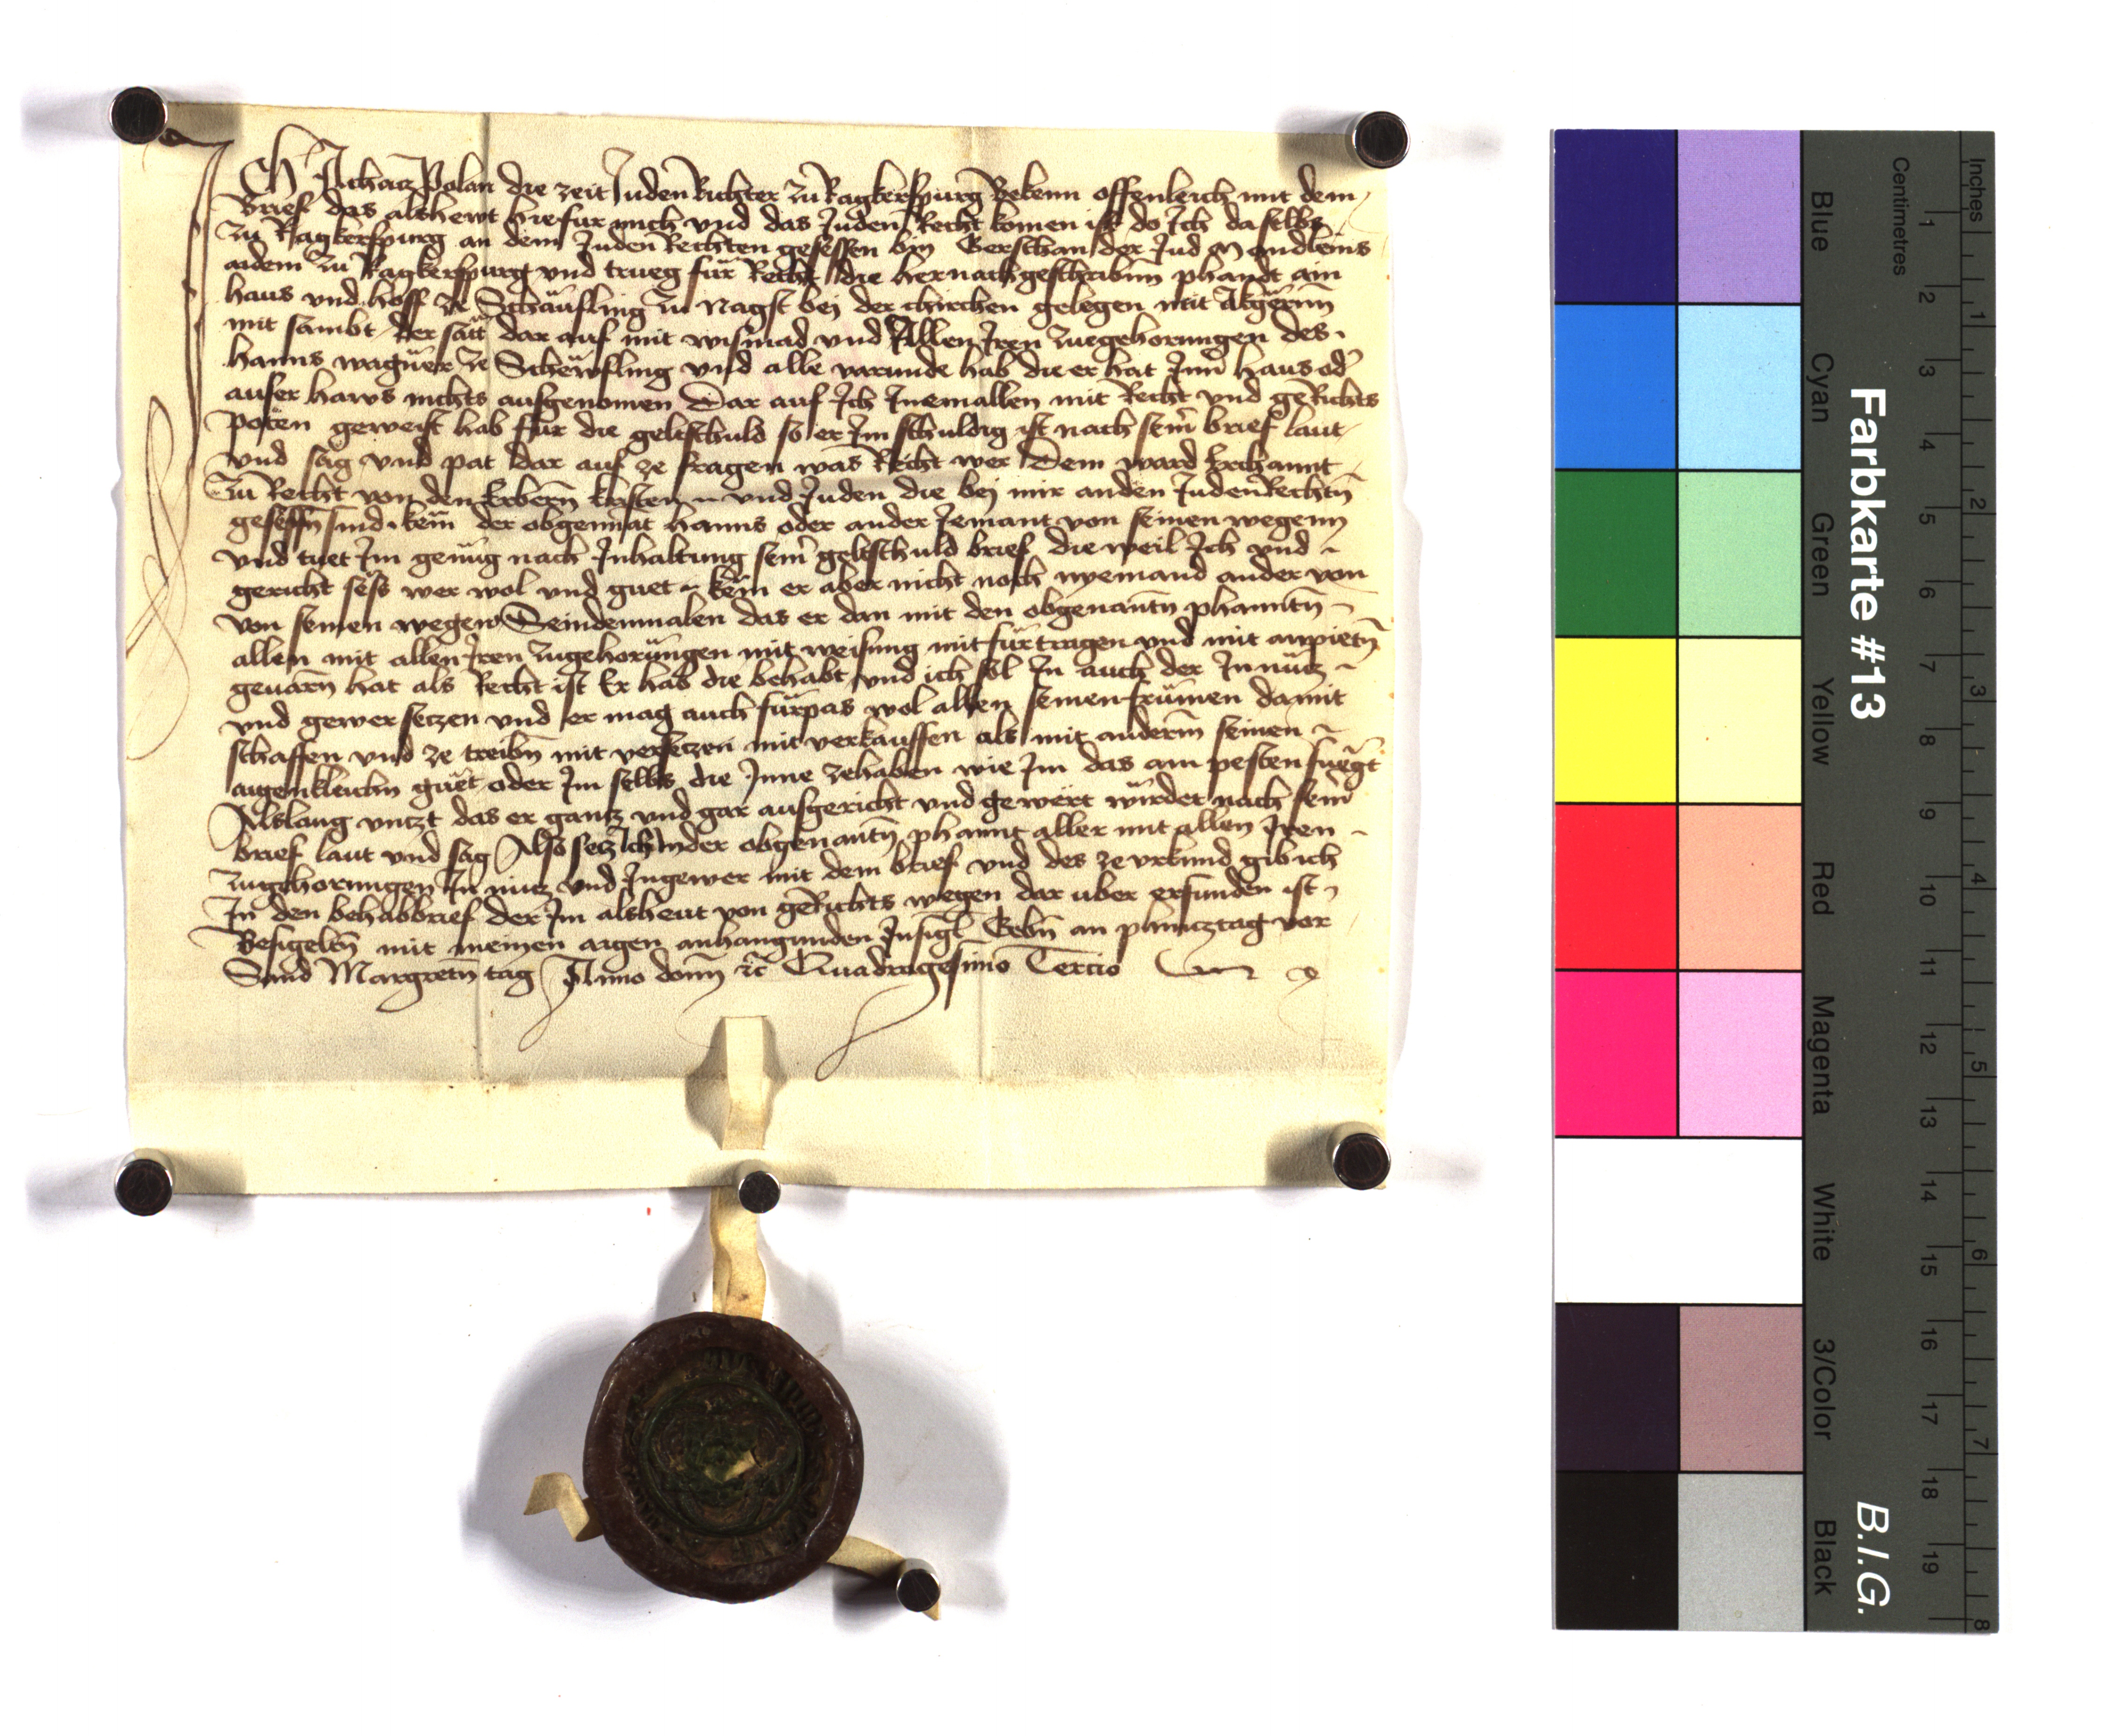 Ich Achacz Polan die zeit Juden Richter zu Ragkerspurg Bekenn offenleich mit dem
brief das alshewt hiefur mich vnd das Juden Recht komen ist do Ich daselbs
zu Ragkerspurg an dem Juden Rechten gesessen bin Gerschan der Jud Mandleins
aidem zu Ragkerspurg vnd trueg für Recht die hernachgeschribnn phandt ain
haus vnd hoff ze Schäufling zu nagst bej der chirchen gelegen mit äkgernn
mit sambt der satt dar auf mit wismad vnd Allen Iren zuegehorungen des
hanns wagner ze Schewfling vnd alle varunde hab die er hat Inn haus od
auser haws nichts ausgenomen Dar auf Ich Inemallen mit Recht vnd geRichts
poten geweist hab für die geltschuld so er Im schuldig ist nach seim brief laut
vnd sag vnd pat dar auf ze fragen was Recht wer Dem ward Erchannt
zu Recht von den Erbern kristen vnd Juden die bej mir an den JudenRechtn
gesessn sind kem der obgennat hanns oder ander Jemant von seinen wegenn
vnd tuet Im genug nach Inhaltung seins geltschuld brief die weil Ich vnd
gericht sess wer wol vnd guet kem er aber nicht noch nyemand ander von
von seinen wegen Seindenmalen das er dan mit den obgenantn phanntn
allen mit allen Iren zugehorungen mit weisung mit fürtragen vnd mit anpietn
geuarn hat als Recht ist Er hab die behabt vnd ich sol In auch der In nucz
vnd gewer seczen vnd er mag auch fürpas wol allen seinen frumen damit
schaffen vnd ze treibn mit verseczen mit verkauffen als mit anderm seinen
aigenkleichn guet oder Im selbs die Inne zehaben wie Im das am pesten fuegt
Alslang vnczt das er gancz vnd gar ausgericht vnd gewert wirdet nach seim
brief laut vnd sag Also secz Ich In der obgenantn phannt aller mit allen Iren
zugehorungen In nucz vnd Ingewer mit dem brief vnd des ze vrkund gib ich
In den behabbrief der Im alsheut von geRichts wegen dar uber erfunden ist
Besigeltn mit meinen aigen anhangunden Insigl Gebn an phincztag vor
Sand Margretn tag Anno domi etc Quadragesimo Tercio
Farbkarte #13
B.I.G.
Inches
1
2
3
4
5
6
7
8
Centimetres
1
2
3
4
5
6
7
8
9
10
11
12
13
14
15
16
17
18
19
Blue
Cyan
Green
Yellow
Red
Magenta
White
3/Color
Black